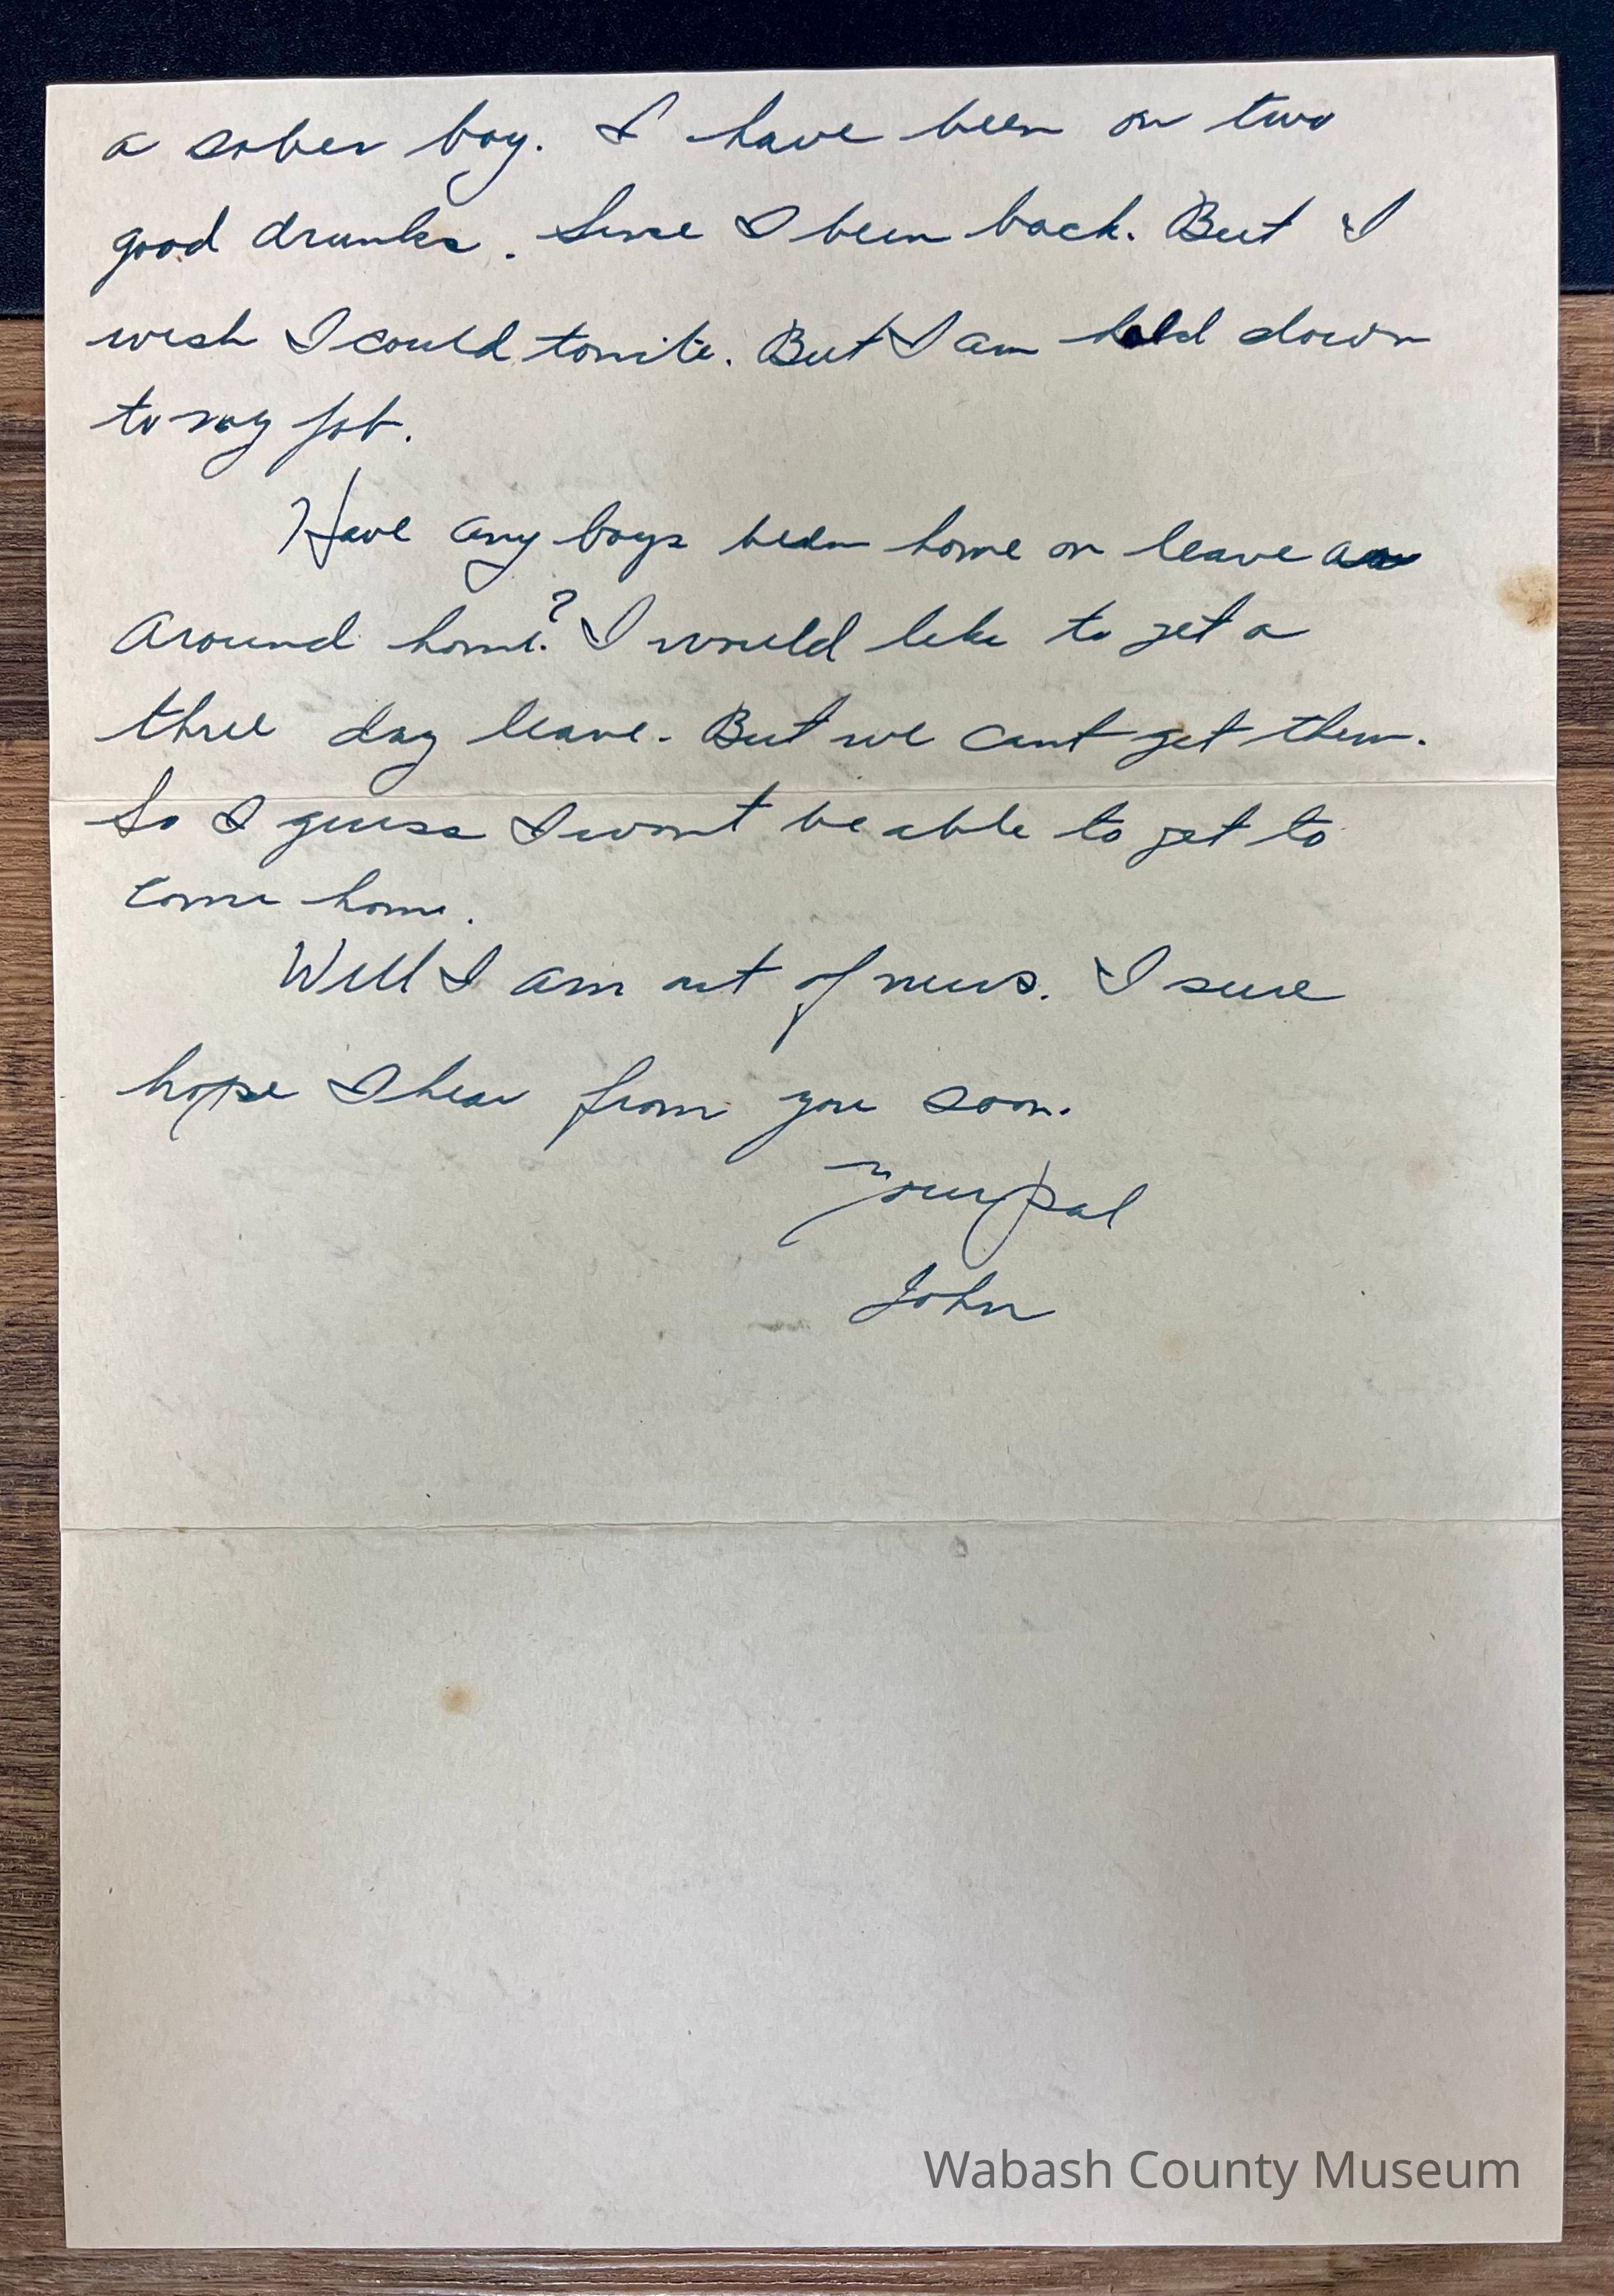 a sober boy. I have been on two
good drunks. Since I been back. But I
wish I could tonite. But I am held down
to my job.
Have any boys been home on leave
around home? I would like to get a
three day leave. But we cant get them.
So I guess I wont be able to get to
come home.
Well I am out of news. I sure
hope I hear from you soon.
Your pal
John
Wabash County Museum